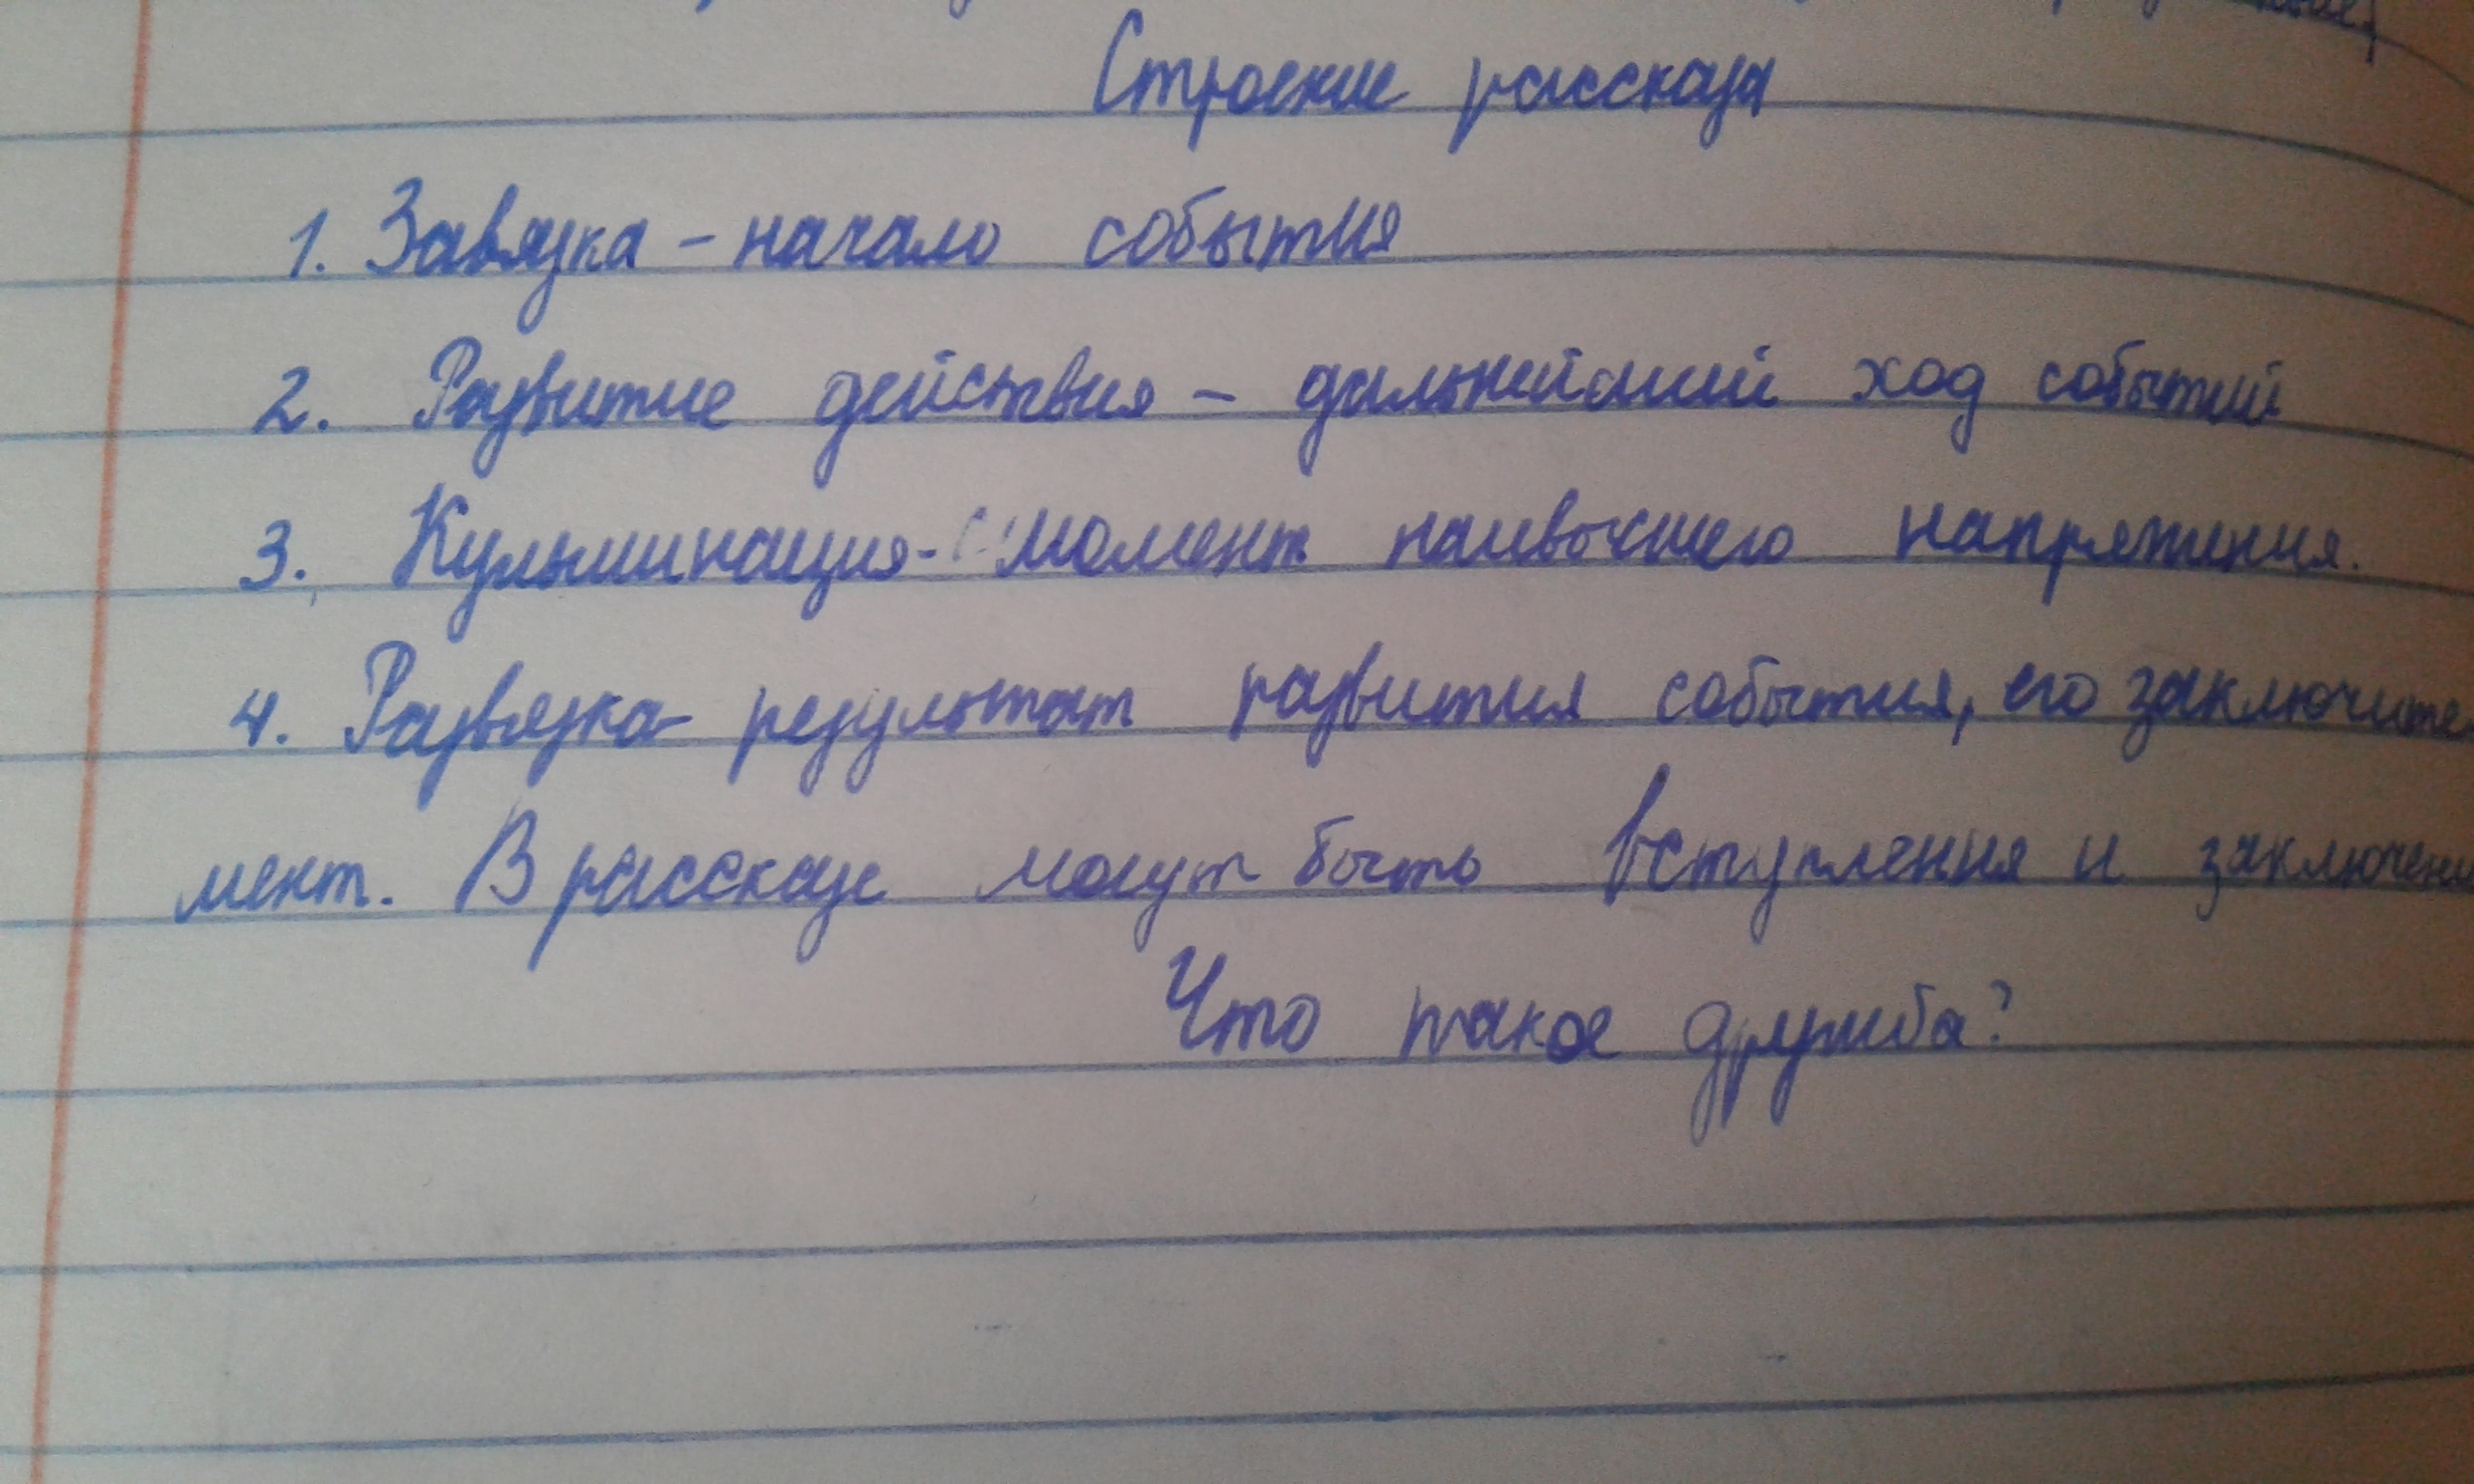 Строение рассказа
1. Завязка - начало события
2. Развитие действия - дальнейший ход событий
3. Кульминация - момент наивысшего напряжения.
4. Развязка - результат развития события, его заключите
мент. В рассказе могут быть вступления и заключени
Что такое дружба?